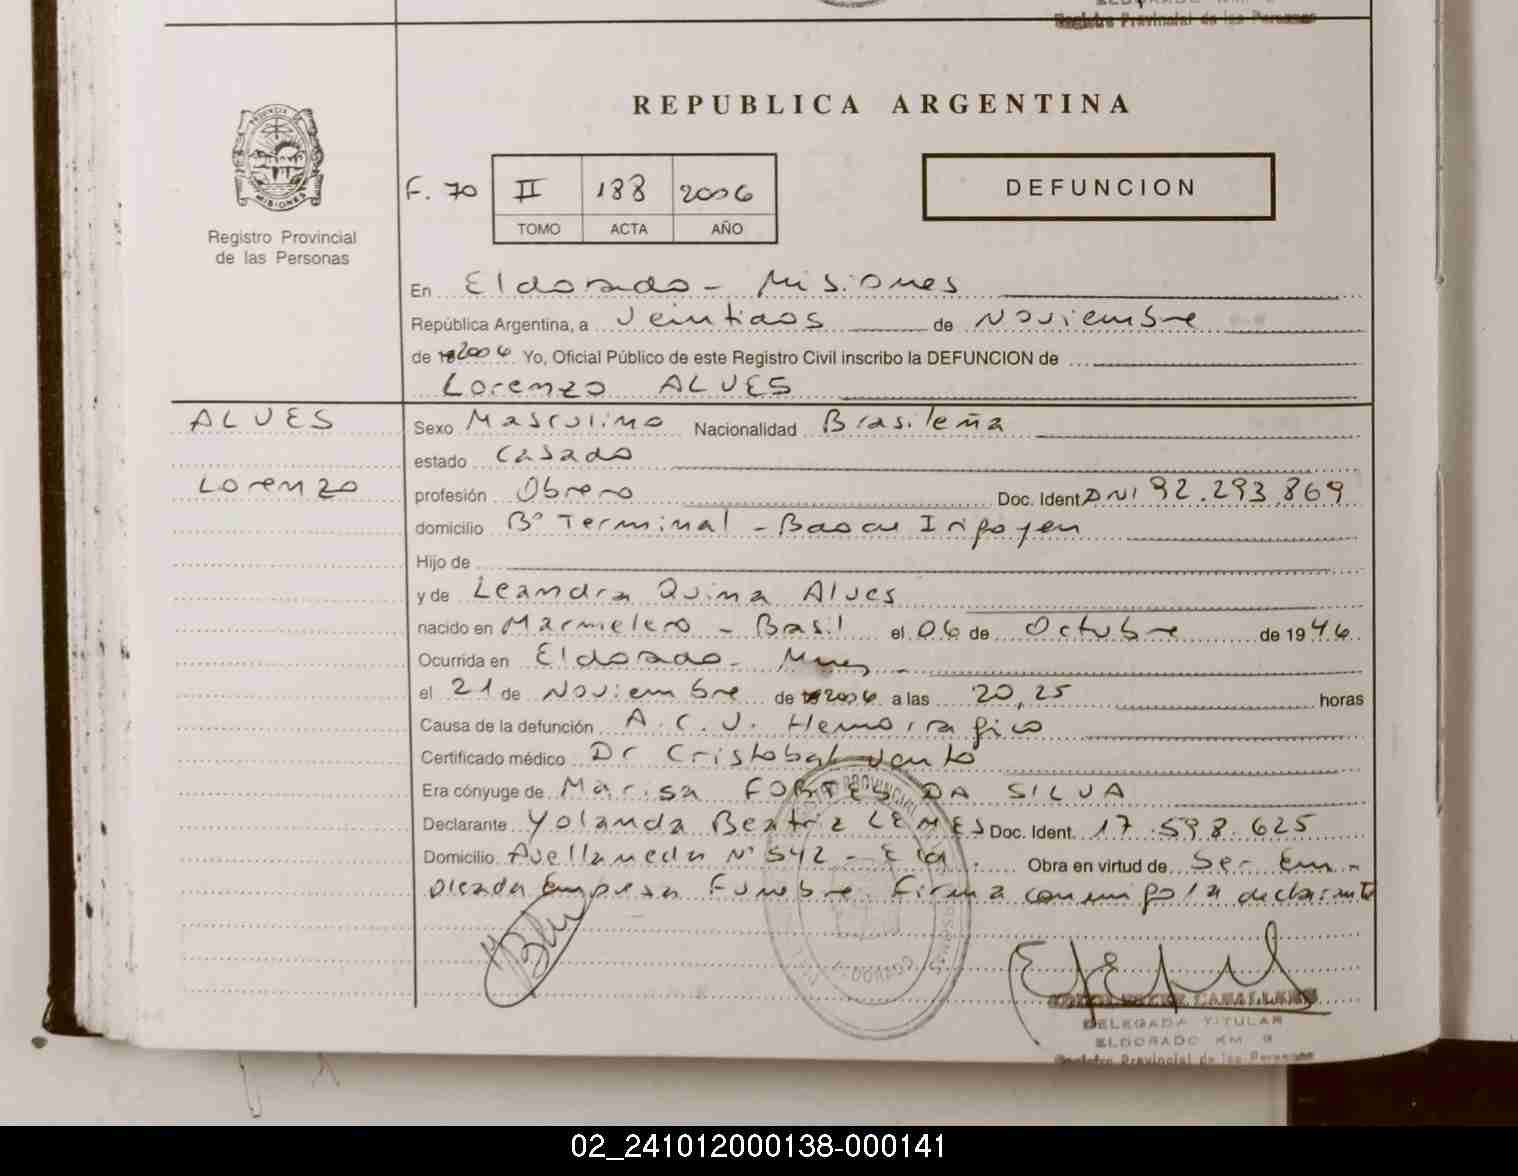 Registro Provincial de las Personas
REPUBLICA ARGENTINA
PROVINCIA DE
MISIONES
Registro Provincial
de las Personas
F. 70 II 188 2006
TOMO ACTA AÑO
DEFUNCION
En Eldorado - Misiones
República Argentina, a Veintidos de Noviembre
de 2006 Yo, Oficial Público de este Registro Civil inscribo la DEFUNCION de
Lorenzo ALVES
ALVES
Lorenzo
Sexo Masculino Nacionalidad Brasileña
estado Casado
profesión Obrero Doc. Ident. DNI 92.293.869
domicilio Bº Terminal - Irigoyen
Hijo de
y de Leandra Quina Alves
nacido en Marmelero - Brasil el 06 de Octubre de 1946
Ocurrida en Eldorado - Mnes
el 21 de Noviembre de 2006 a las 20,25 horas
Causa de la defunción A.C.V. Hemorragico
Certificado médico Dr Cristobal Vento
Era cónyuge de Marisa FORTES DA SILVA
Declarante Yolanda Beatriz LEMES Doc. Ident. 17.598.625
Domicilio Avellaneda Nº 542 - Eld. Obra en virtud de Ser em-
pleada Empresa Funebre. Firma conmigo la declarante
DELEGADA TITULAR
ELDORADO KM 9
Registro Provincial de las Personas
02_241012000138-000141